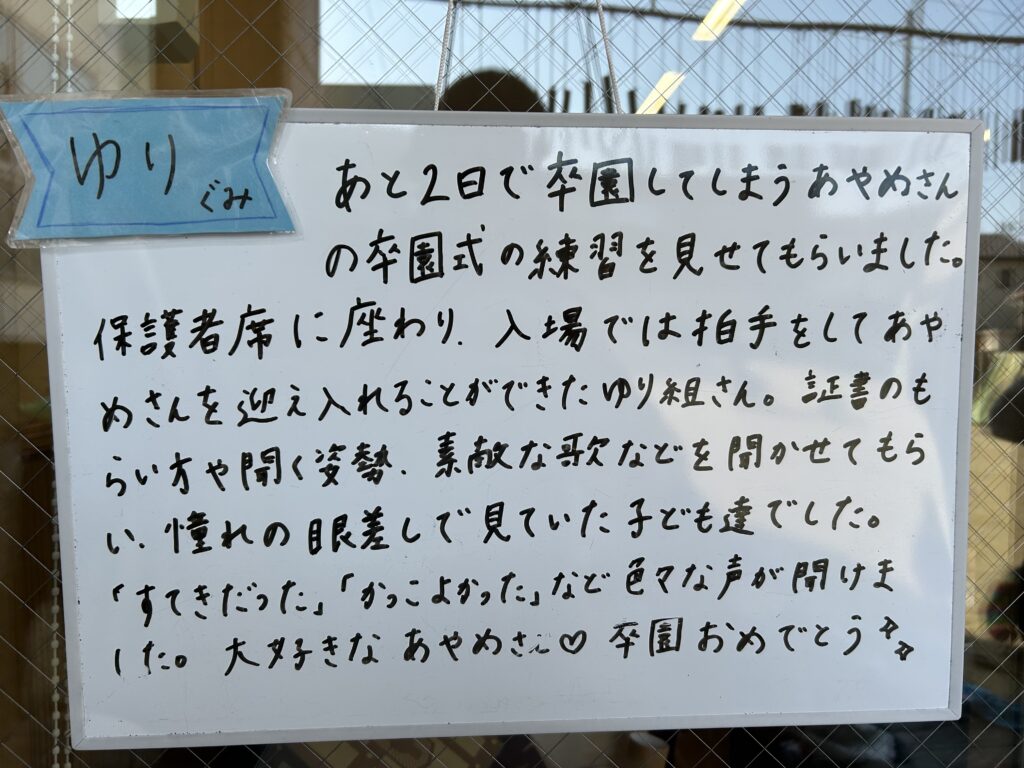 ゆり
ぐみ
あと2日で卒園してしまうあやめさん
の卒園式の練習を見せてもらいました。
保護者席に座わり、入場では拍手をしてあや
めさんを迎え入れることができたゆり組さん。証書のも
らい方や聞く姿勢、素敵な歌などを聞かせてもら
い、憧れの眼差しで見ていた子ども達でした。
「すてきだった」「かっこよかった」など色々な声が聞けま
した。大好きなあやめさん♡卒園おめでとう